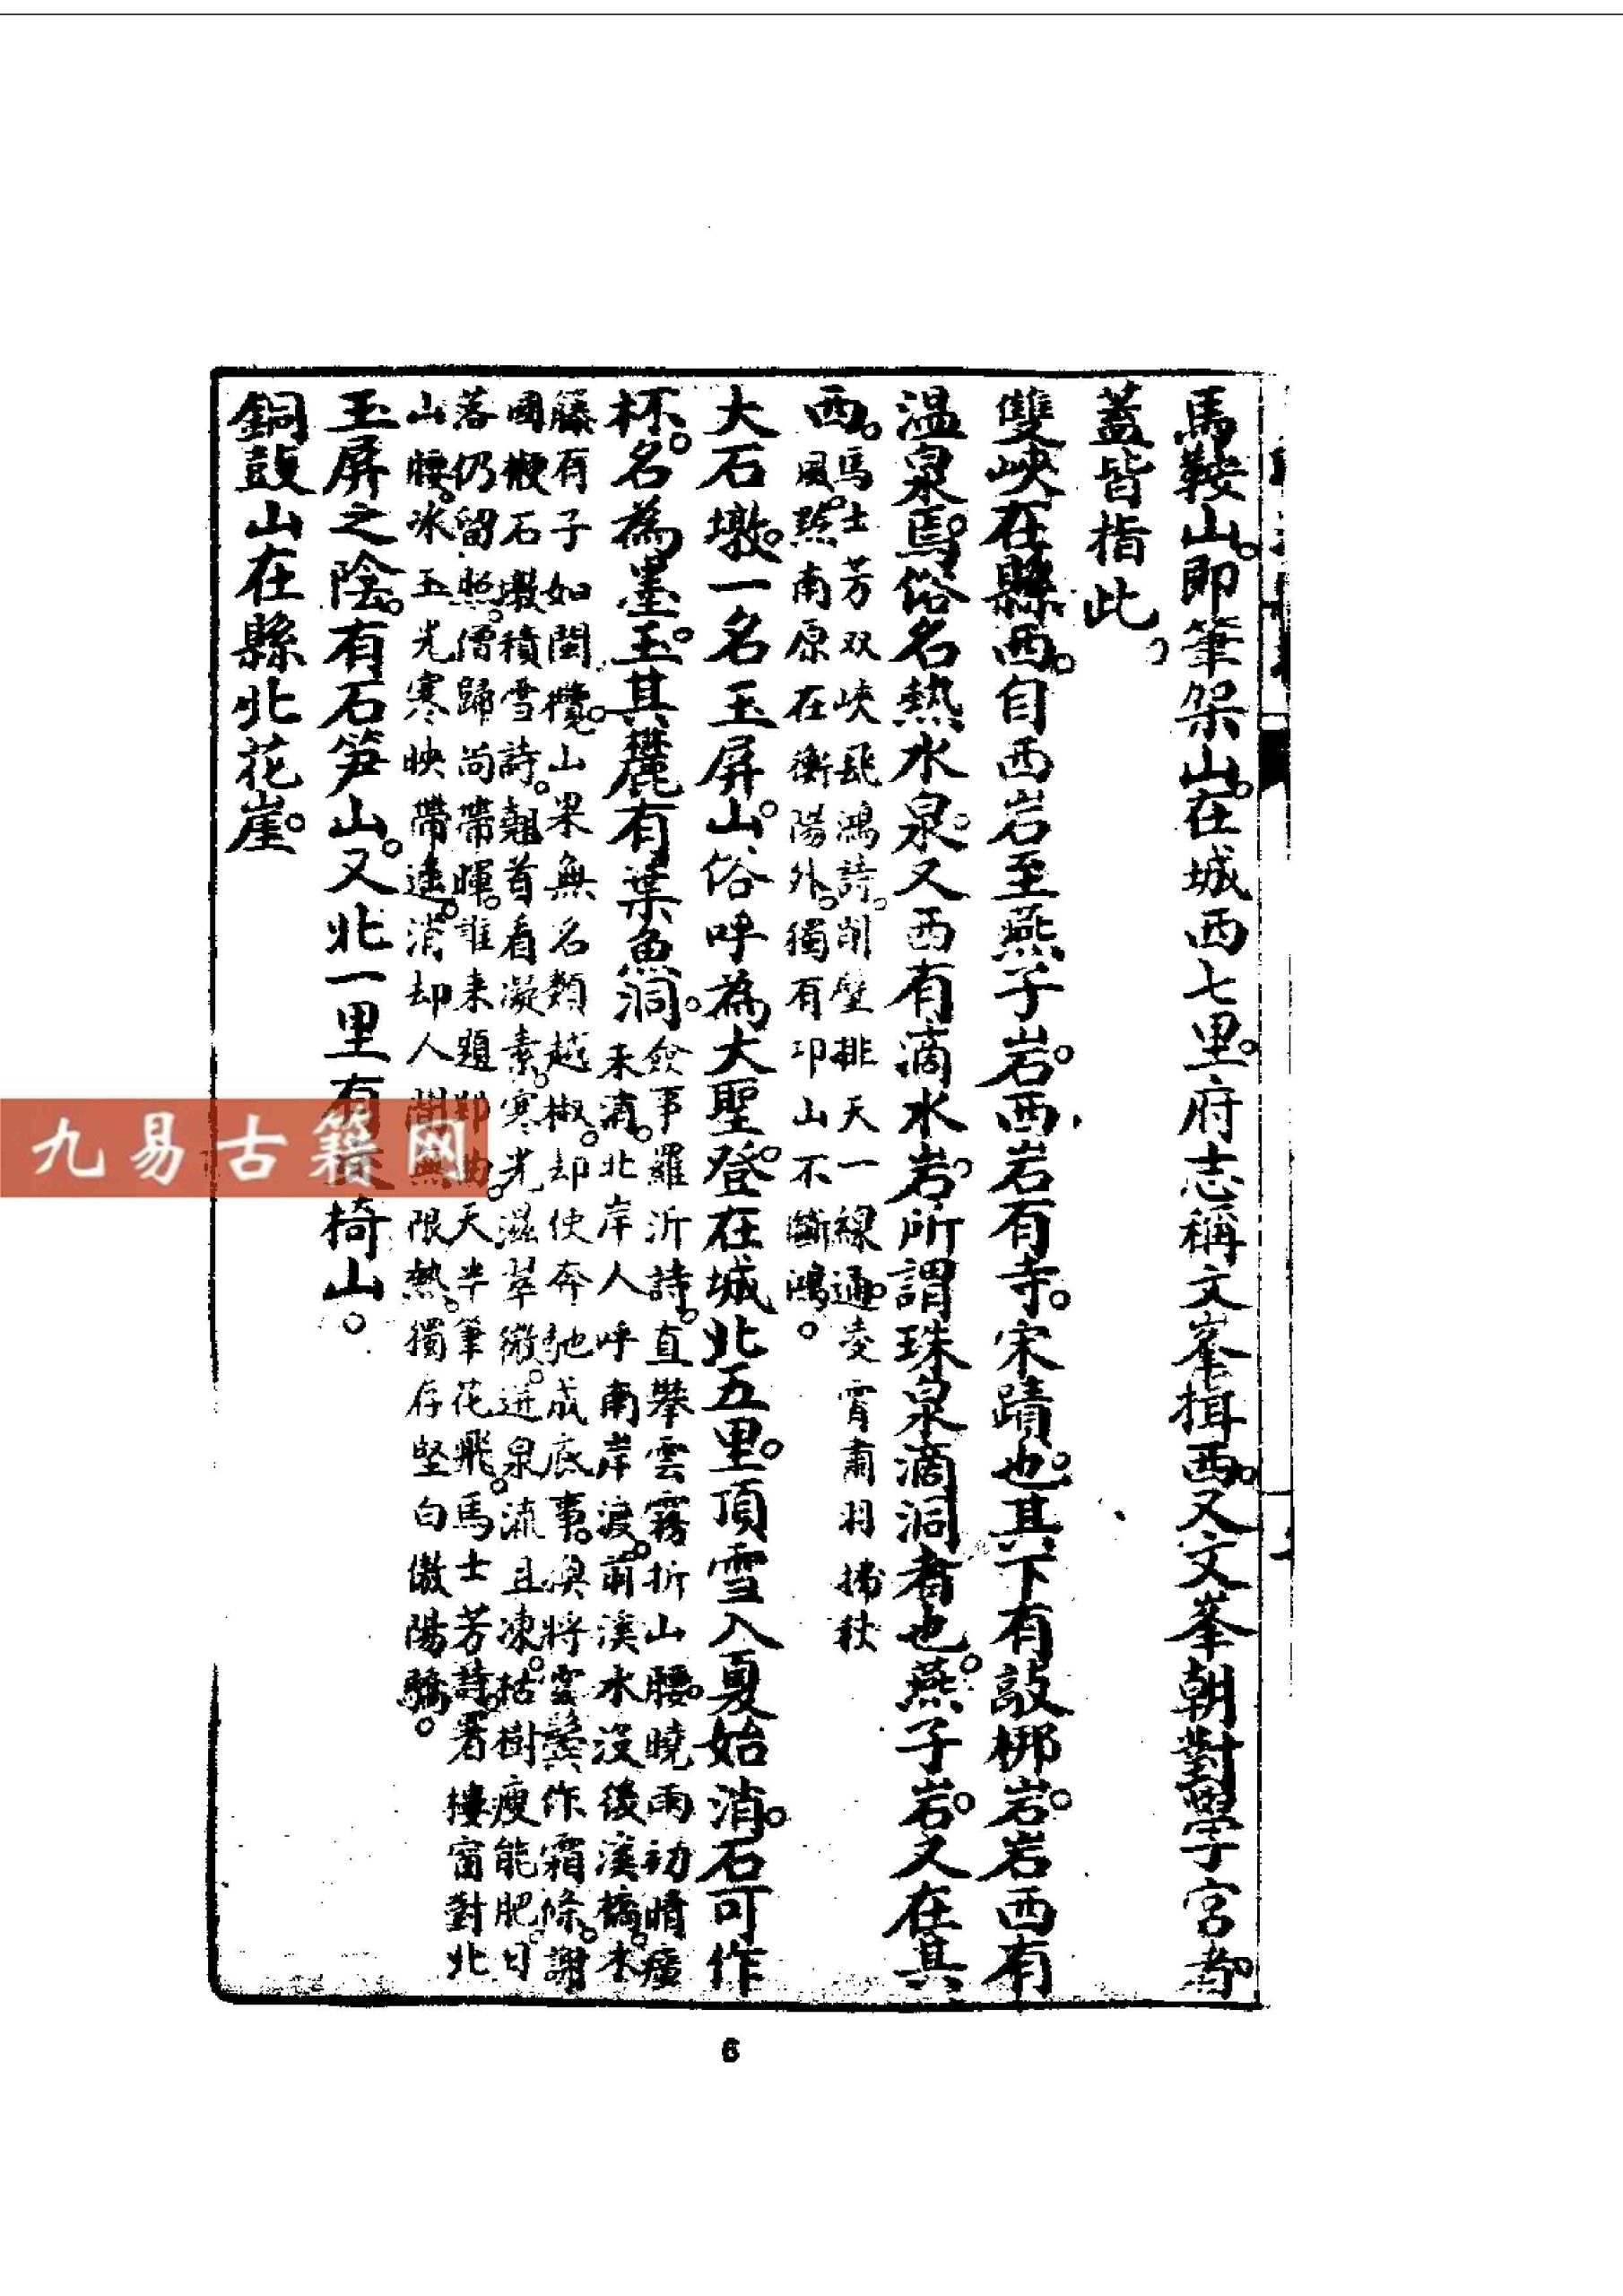 馬鞍山。即筆架山。在城西七里。府志稱文峯揖西。又文峯朝對學宮者。
蓋皆指此。
雙峽在縣西。自西岩至燕子岩。西岩有寺。宋蹟也。其下有敲梆岩。岩西有
温泉焉。俗名熱水泉。又西有滴水岩。所謂珠泉滴洞者也。燕子岩。又在其
西。
馬士芳双峽飛鴻詩。削壁排天一線通。凌霄肅羽搏秋
風。㸃南原在衡陽外。獨有卭山不斷鴻。
大石墩。一名玉屏山。俗呼為大聖登。在城北五里。頂雪入夏始消。石可作
杯。名為墨玉。其麓有葉魚洞。
僉事羅沂詩。直攀雲霧折山腰。曉雨初晴瘴
未消。北岸人呼南岸渡。前溪水没後溪橋。木
藤有子如閩欖。山果無名類越椒。却使奔馳成底事。 將雲鬢作霜條。謝
國楩石墩積雪詩。翹首看凝素。寒光滋翠微。迸泉流且凍。枯樹瘦能肥。日
落仍留照。僧歸尚帶暉。誰来題 曲。天半筆花飛。馬士芳詩。署樓窗對北
山腰。冰玉光寒映帶遥。消却人間無限熱。獨存堅白傲陽驕。
玉屏之陰。有石笋山。又北一里有 椅山。
銅鼓山在縣北花崖。
九易古籍网
6